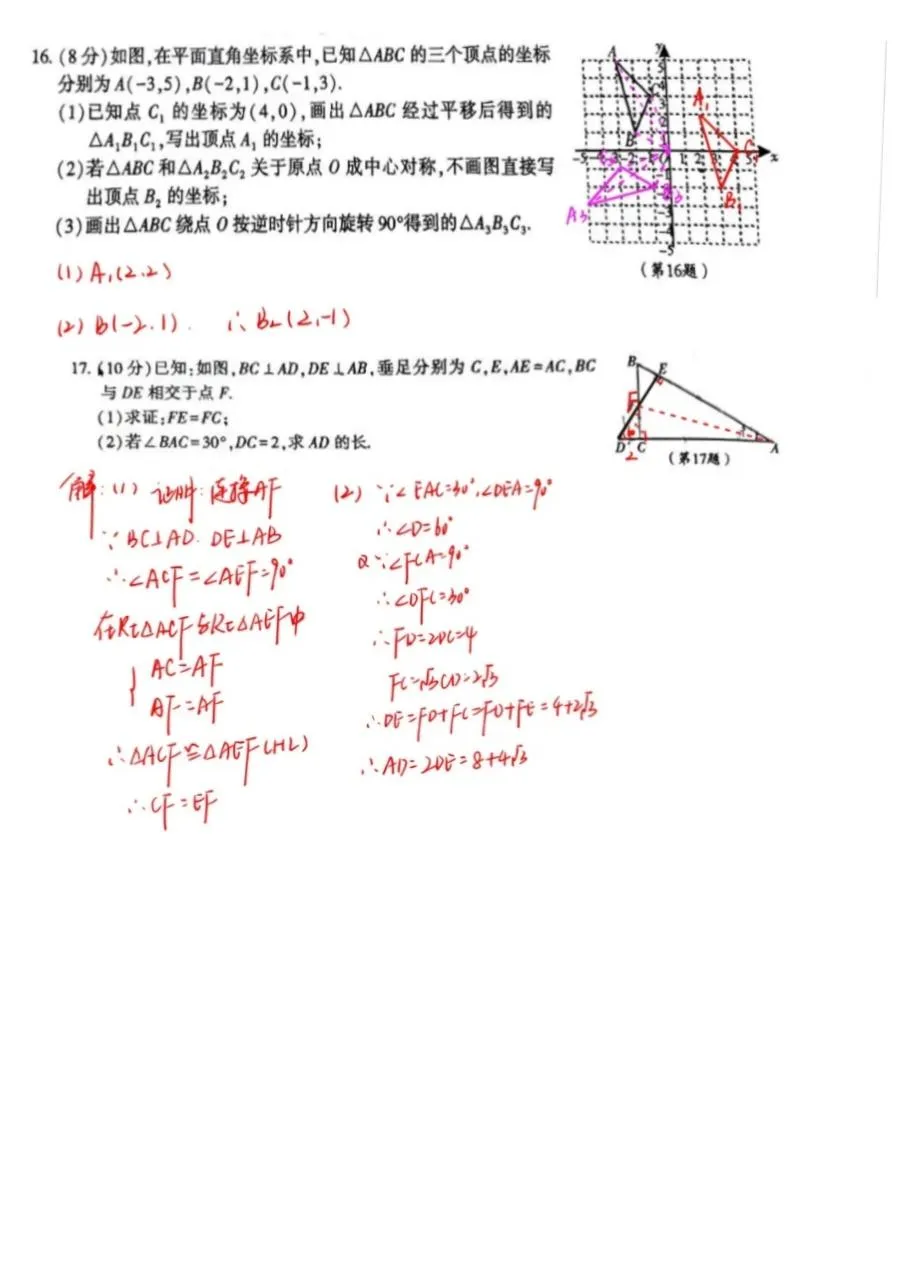 16. (8分)如图,在平面直角坐标系中,已知△ABC 的三个顶点的坐标
分别为 A(-3,5),B(-2,1),C(-1,3).
(1)已知点 C₁ 的坐标为(4,0),画出△ABC 经过平移后得到的
△A₁B₁C₁,写出顶点 A₁ 的坐标;
(2)若△ABC 和△A₂B₂C₂ 关于原点 O 成中心对称,不画图直接写
出顶点 B₂ 的坐标;
(3)画出△ABC 绕点 O 按逆时针方向旋转 90°得到的△A₃B₃C₃.
A
y
5
4
C
3
A₁
2
B
1
-5 -3 -2 O 1 2 3 4 5 x
C₁
B₃
A₃
B₁
-3
-4
-5
(第16题)
(1) A₁(2,2)
(2) B(-2,1). ∴B₂(2,-1)
17. (10分)已知:如图,BC⊥AD,DE⊥AB,垂足分别为 C,E,AE=AC,BC
与 DE 相交于点 F.
(1)求证:FE=FC;
(2)若∠BAC=30°,DC=2,求 AD 的长.
B E
F
D C A
2
(第17题)
解:(1) 证明:连接AF
∵BC⊥AD. DE⊥AB
∴∠ACF=∠AEF=90°
在Rt△ACF与Rt△AEF中
AC=AF
AF=AF
∴△ACF≌△AEF(HL)
∴CF=EF
(2) ∵∠EAC=30°,∠DEA=90°
∴∠D=60°
∵∠FCA=90°
∴∠DFC=30°
∴FD=2DC=4
FC=√3CD=2√3
∴DE=FD+FC=FD+FE=4+2√3
∴AD=2DE=8+4√3